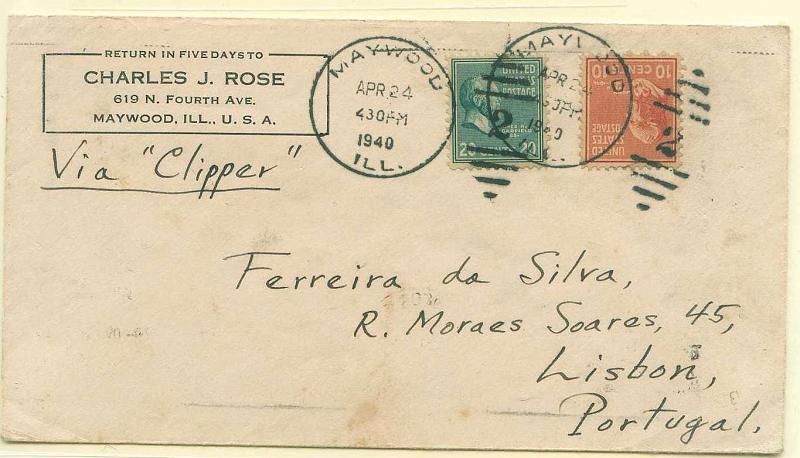 RETURN IN FIVE DAYS TO
CHARLES J. ROSE
619 N. FOURTH AVE.
MAYWOOD, ILL., U. S. A.
Via "Clipper"
MAYWOOD
APR 24
430PM
1940
ILL.
UNITED STATES POSTAGE
20 CENTS 20
2
MAYWOOD
APR 24
430PM
1940
10 CENTS
UNITED
STATES
POSTAGE
Ferreira da Silva,
R. Moraes Soares, 45,
Lisbon,
Portugal.